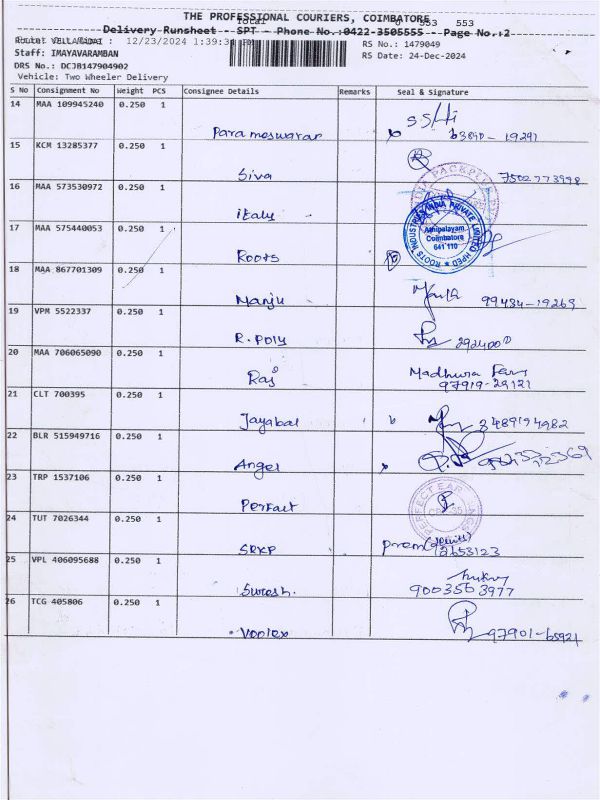 THE PROFESSIONAL COURIERS, COIMBATORE
Total 0 553 553
Delivery Runsheet SPT - Phone No.:0422-3505555 Page No.:2
Route: VELLALORE
12/23/2024 1:39:3
Staff: IMAYAVARAMBAN
RS No.: 1479049
DRS No.: DCJB147904902
RS Date: 24-Dec-2024
Vehicle: Two Wheeler Delivery
S No Consignment No Weight PCS Consignee Details Remarks Seal & Signature
14 MAA 109945240 0.250 1
Parameswaran
15 KCM 13285377 0.250 1
Siva 7502773998
16 MAA 573530972 0.250 1
italy
17 MAA 575440053 0.250 1
Roots
ROOTS INDUSTRIES INDIA PRIVATE LIMITED HPED
Athipalayam,
Coimbatore
641 110
18 MAA 867701309 0.250 1
Manju 99434-19269
19 VPM 5522337 0.250 1
R. Poly
20 MAA 706065090 0.250 1
Raj Madhura
97919-29121
21 CLT 700395 0.250 1
Jayabal 3489194982
22 BLR 515949716 0.250 1
Angel
23 TRP 1537106 0.250 1
Perfact
24 TUT 7026344 0.250 1
SRKP Prem
25 VPL 406095688 0.250 1
Suresh. 9003563977
26 TCG 405806 0.250 1
Voolex 97901-65921